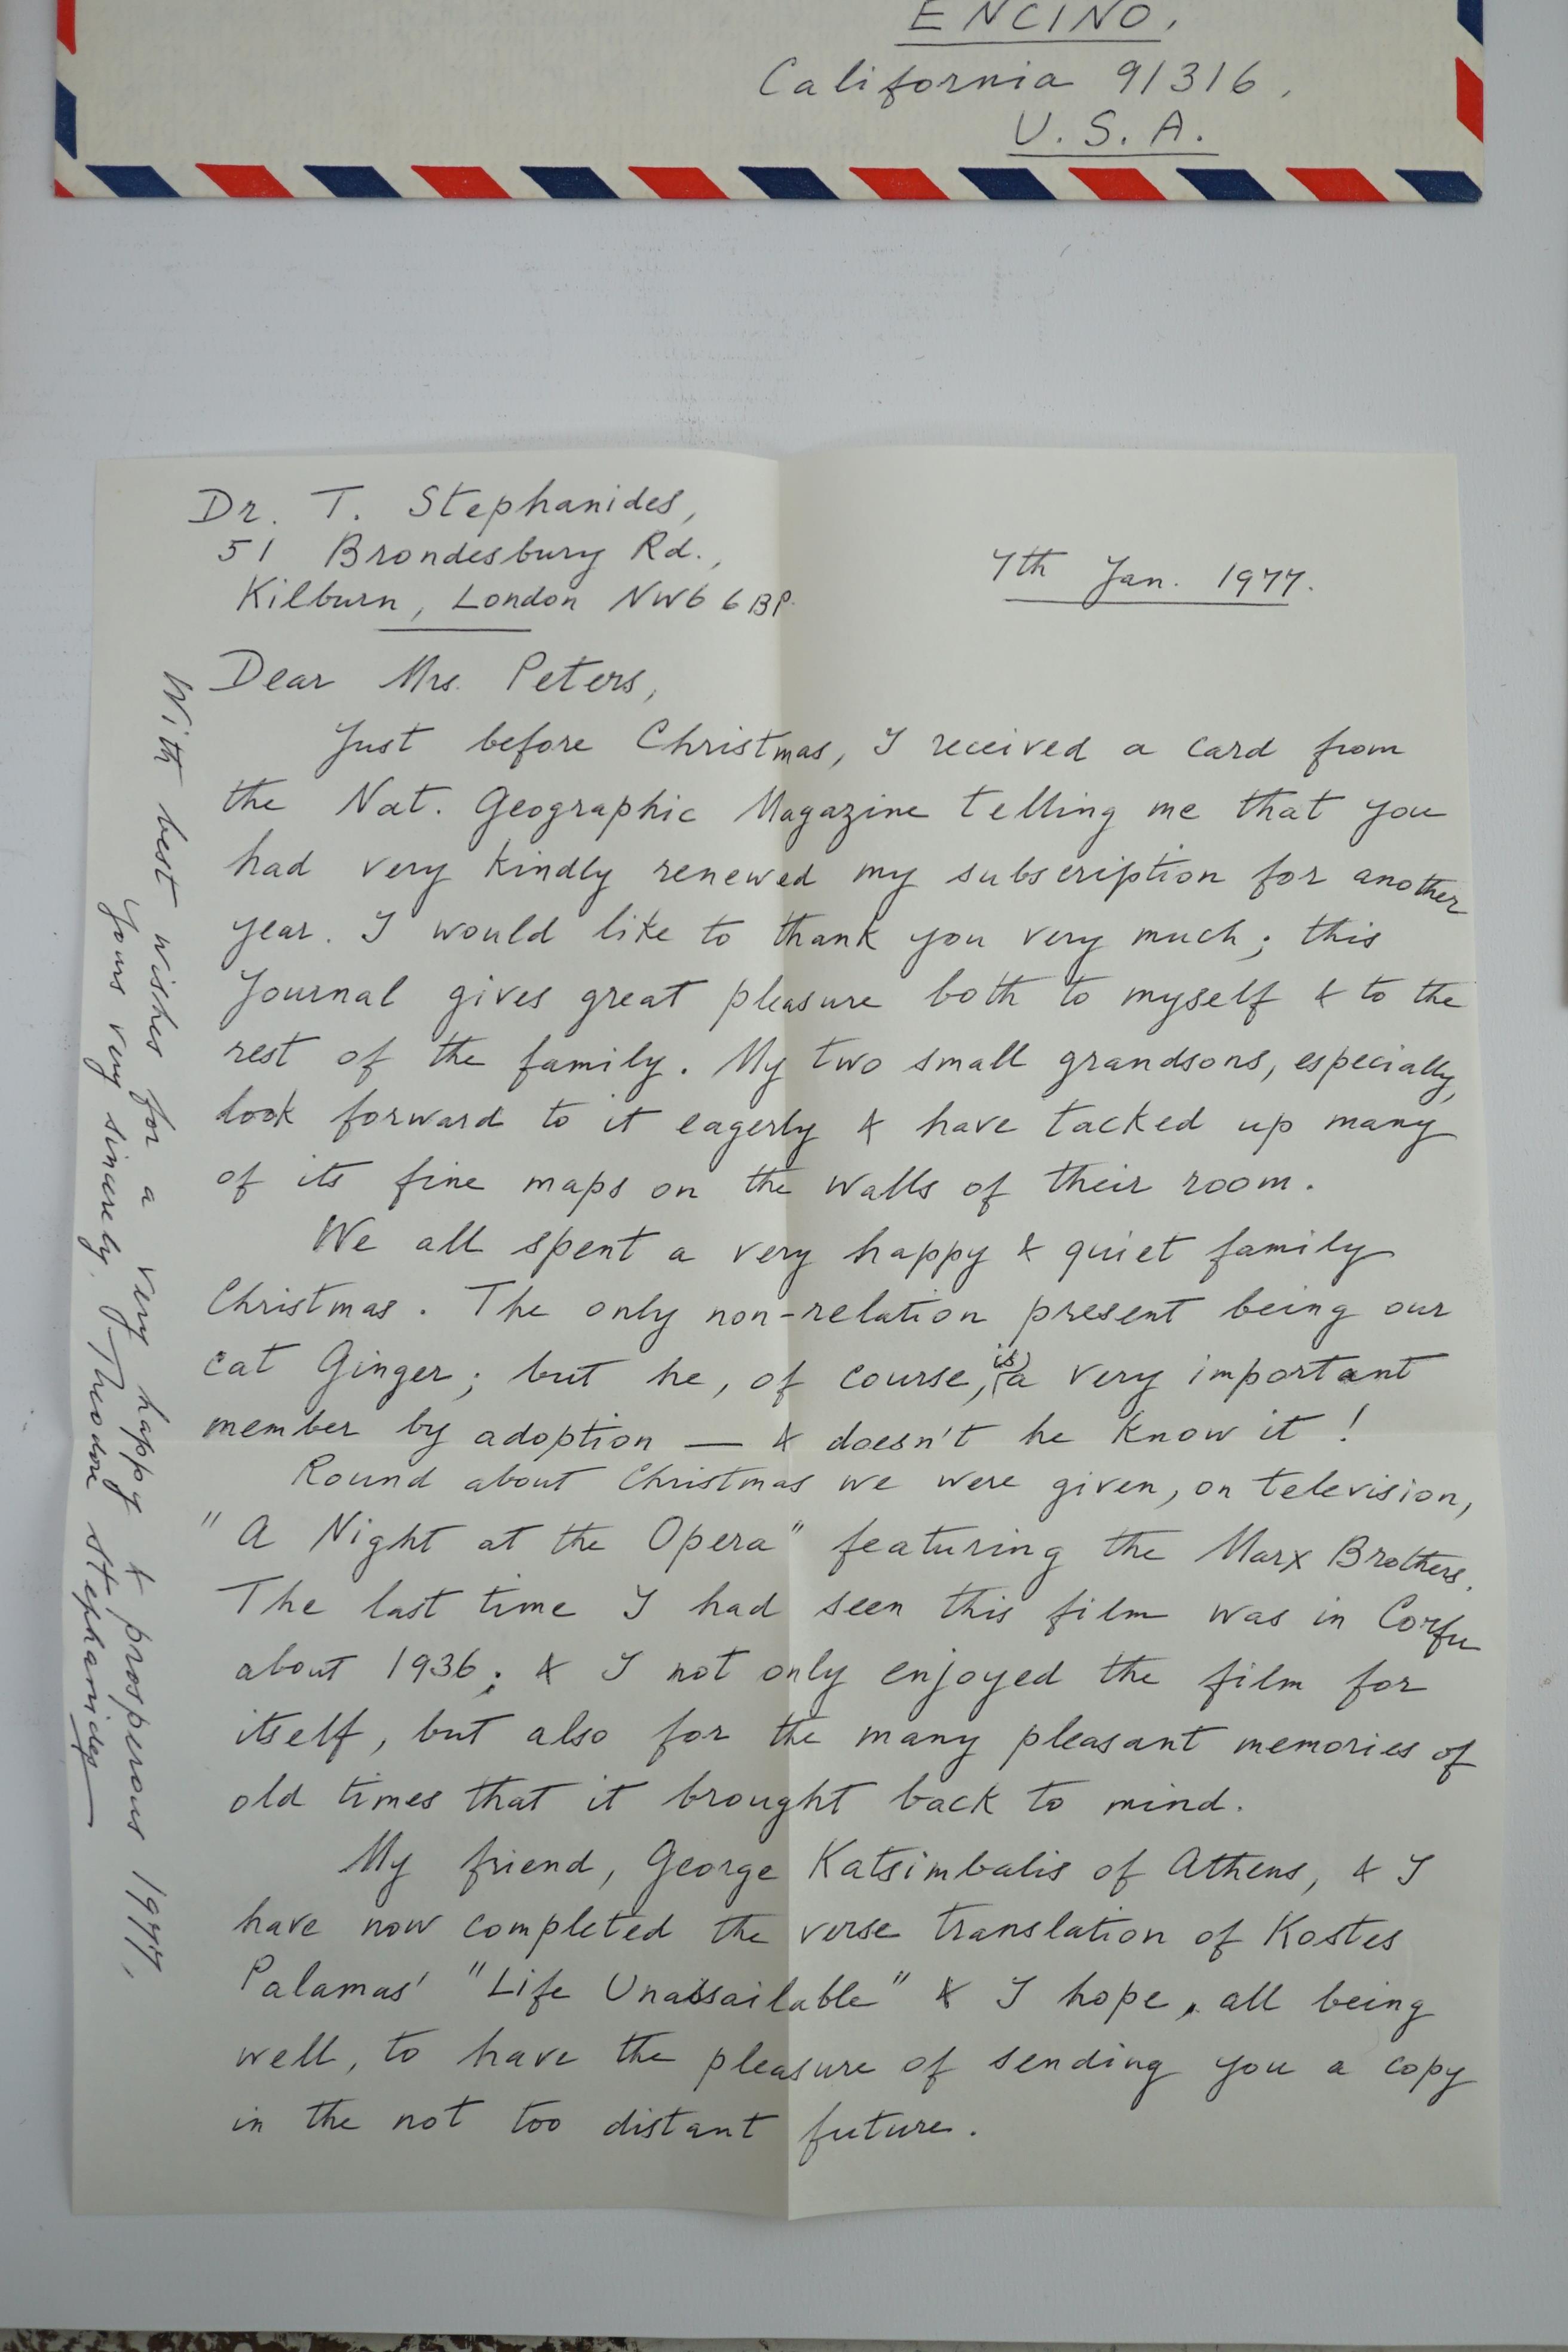 ENCINO,
California 91316,
U.S.A.
Dr. T. Stephanides,
51 Brondesbury Rd.,
Kilburn, London NW6 6BP.
7th Jan. 1977.
Dear Mrs. Peters,
Just before Christmas, I received a card from
the Nat. Geographic Magazine telling me that you
had very kindly renewed my subscription for another
year. I would like to thank you very much; this
Journal gives great pleasure both to myself & to the
rest of the family. My two small grandsons, especially,
look forward to it eagerly & have tacked up many
of its fine maps on the walls of their room.
We all spent a very happy & quiet family
Christmas. The only non-relation present being our
cat Ginger; but he, of course, is a very important
member by adoption — & doesn't he know it!
Round about Christmas we were given, on television,
"A Night at the Opera" featuring the Marx Brothers.
The last time I had seen this film was in Corfu
about 1936; & I not only enjoyed the film for
itself, but also for the many pleasant memories of
old times that it brought back to mind.
My friend, George Katsimbalis of Athens, & I
have now completed the verse translation of Kostes
Palamas' "Life Unassailable" & I hope, all being
well, to have the pleasure of sending you a copy
in the not too distant future.
With best wishes for a very happy & prosperous 1977,
Yours very sincerely,
Theodore Stephanides